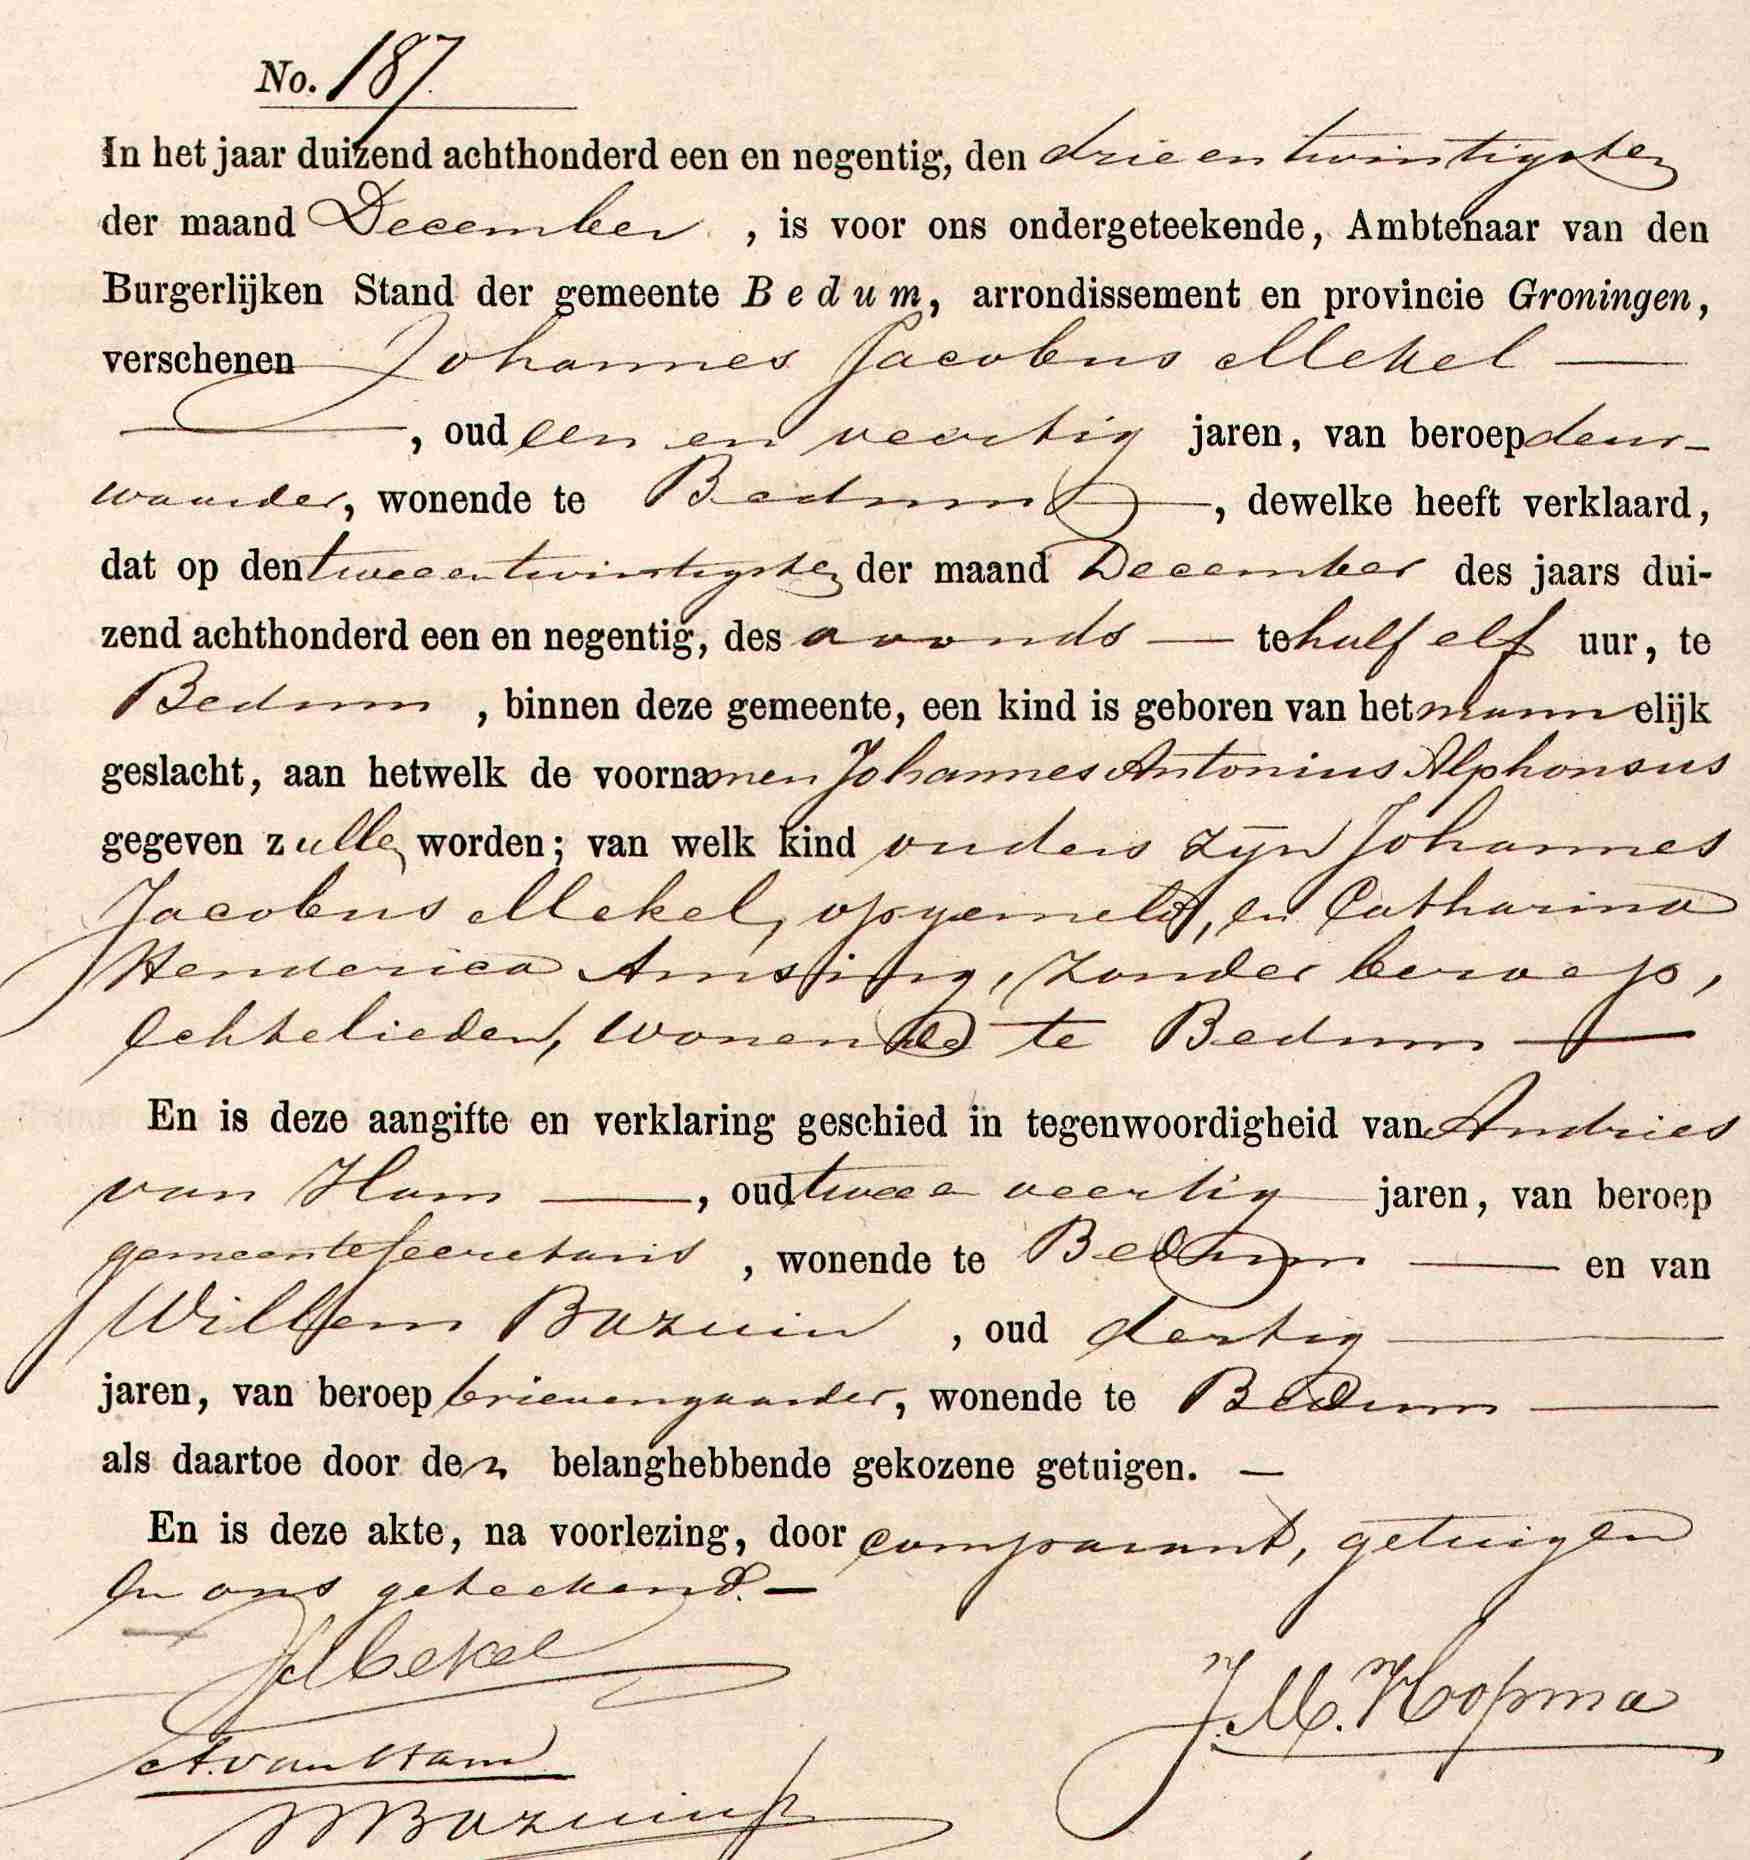 No. 187.
In het jaar duizend achthonderd een en negentig, den drie en twintigsten
der maand December , is voor ons ondergeteekende, Ambtenaar van den
Burgerlijken Stand der gemeente Bedum, arrondissement en provincie Groningen,
verschenen Johannes Jacobus Mekel —
— , oud een en veertig jaren, van beroep deur-
waarder, wonende te Bedum —, dewelke heeft verklaard,
dat op den twee en twintigsten der maand December des jaars dui-
zend achthonderd een en negentig, des avonds — te half elf uur, te
Bedum , binnen deze gemeente, een kind is geboren van het mannelijk
geslacht, aan hetwelk de voornamen Johannes Antonius Alphonsus
gegeven zullen worden; van welk kind ouders zijn Johannes
Jacobus Mekel, opgemeld, en Catharina
Henderica Amsing, zonder beroep,
Echtelieden, wonende te Bedum —
En is deze aangifte en verklaring geschied in tegenwoordigheid van Andries
van Ham —, oud twee en veertig jaren, van beroep
gemeentesecretaris , wonende te Bedum — en van
Willem Bazuin , oud dertig —
jaren, van beroep brievengaarder, wonende te Bedum —
als daartoe door den belanghebbende gekozene getuigen. —
En is deze akte, na voorlezing, door comparant, getuigen
en ons geteekend. —
JJMekel
J.M. Hopma
A. van Ham
W Bazuin